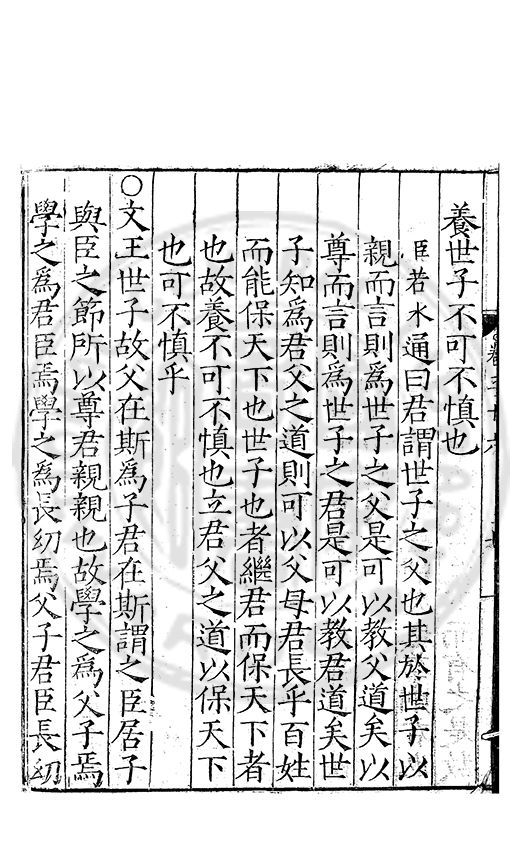 養世子不可不慎也
臣若水通曰君謂世子之父也其於世子以
親而言則爲世子之父是可以教父道矣以
尊而言則爲世子之君是可以教君道矣世
子知爲君父之道則可以父母君長乎百姓
而能保天下也世子也者繼君而保天下者
也故養不可不慎也立君父之道以保天下
也可不慎乎
○文王世子故父在斯爲子君在斯謂之臣居子
與臣之節所以尊君親親也故學之爲父子焉
學之爲君臣焉學之爲長幼焉父子君臣長幼